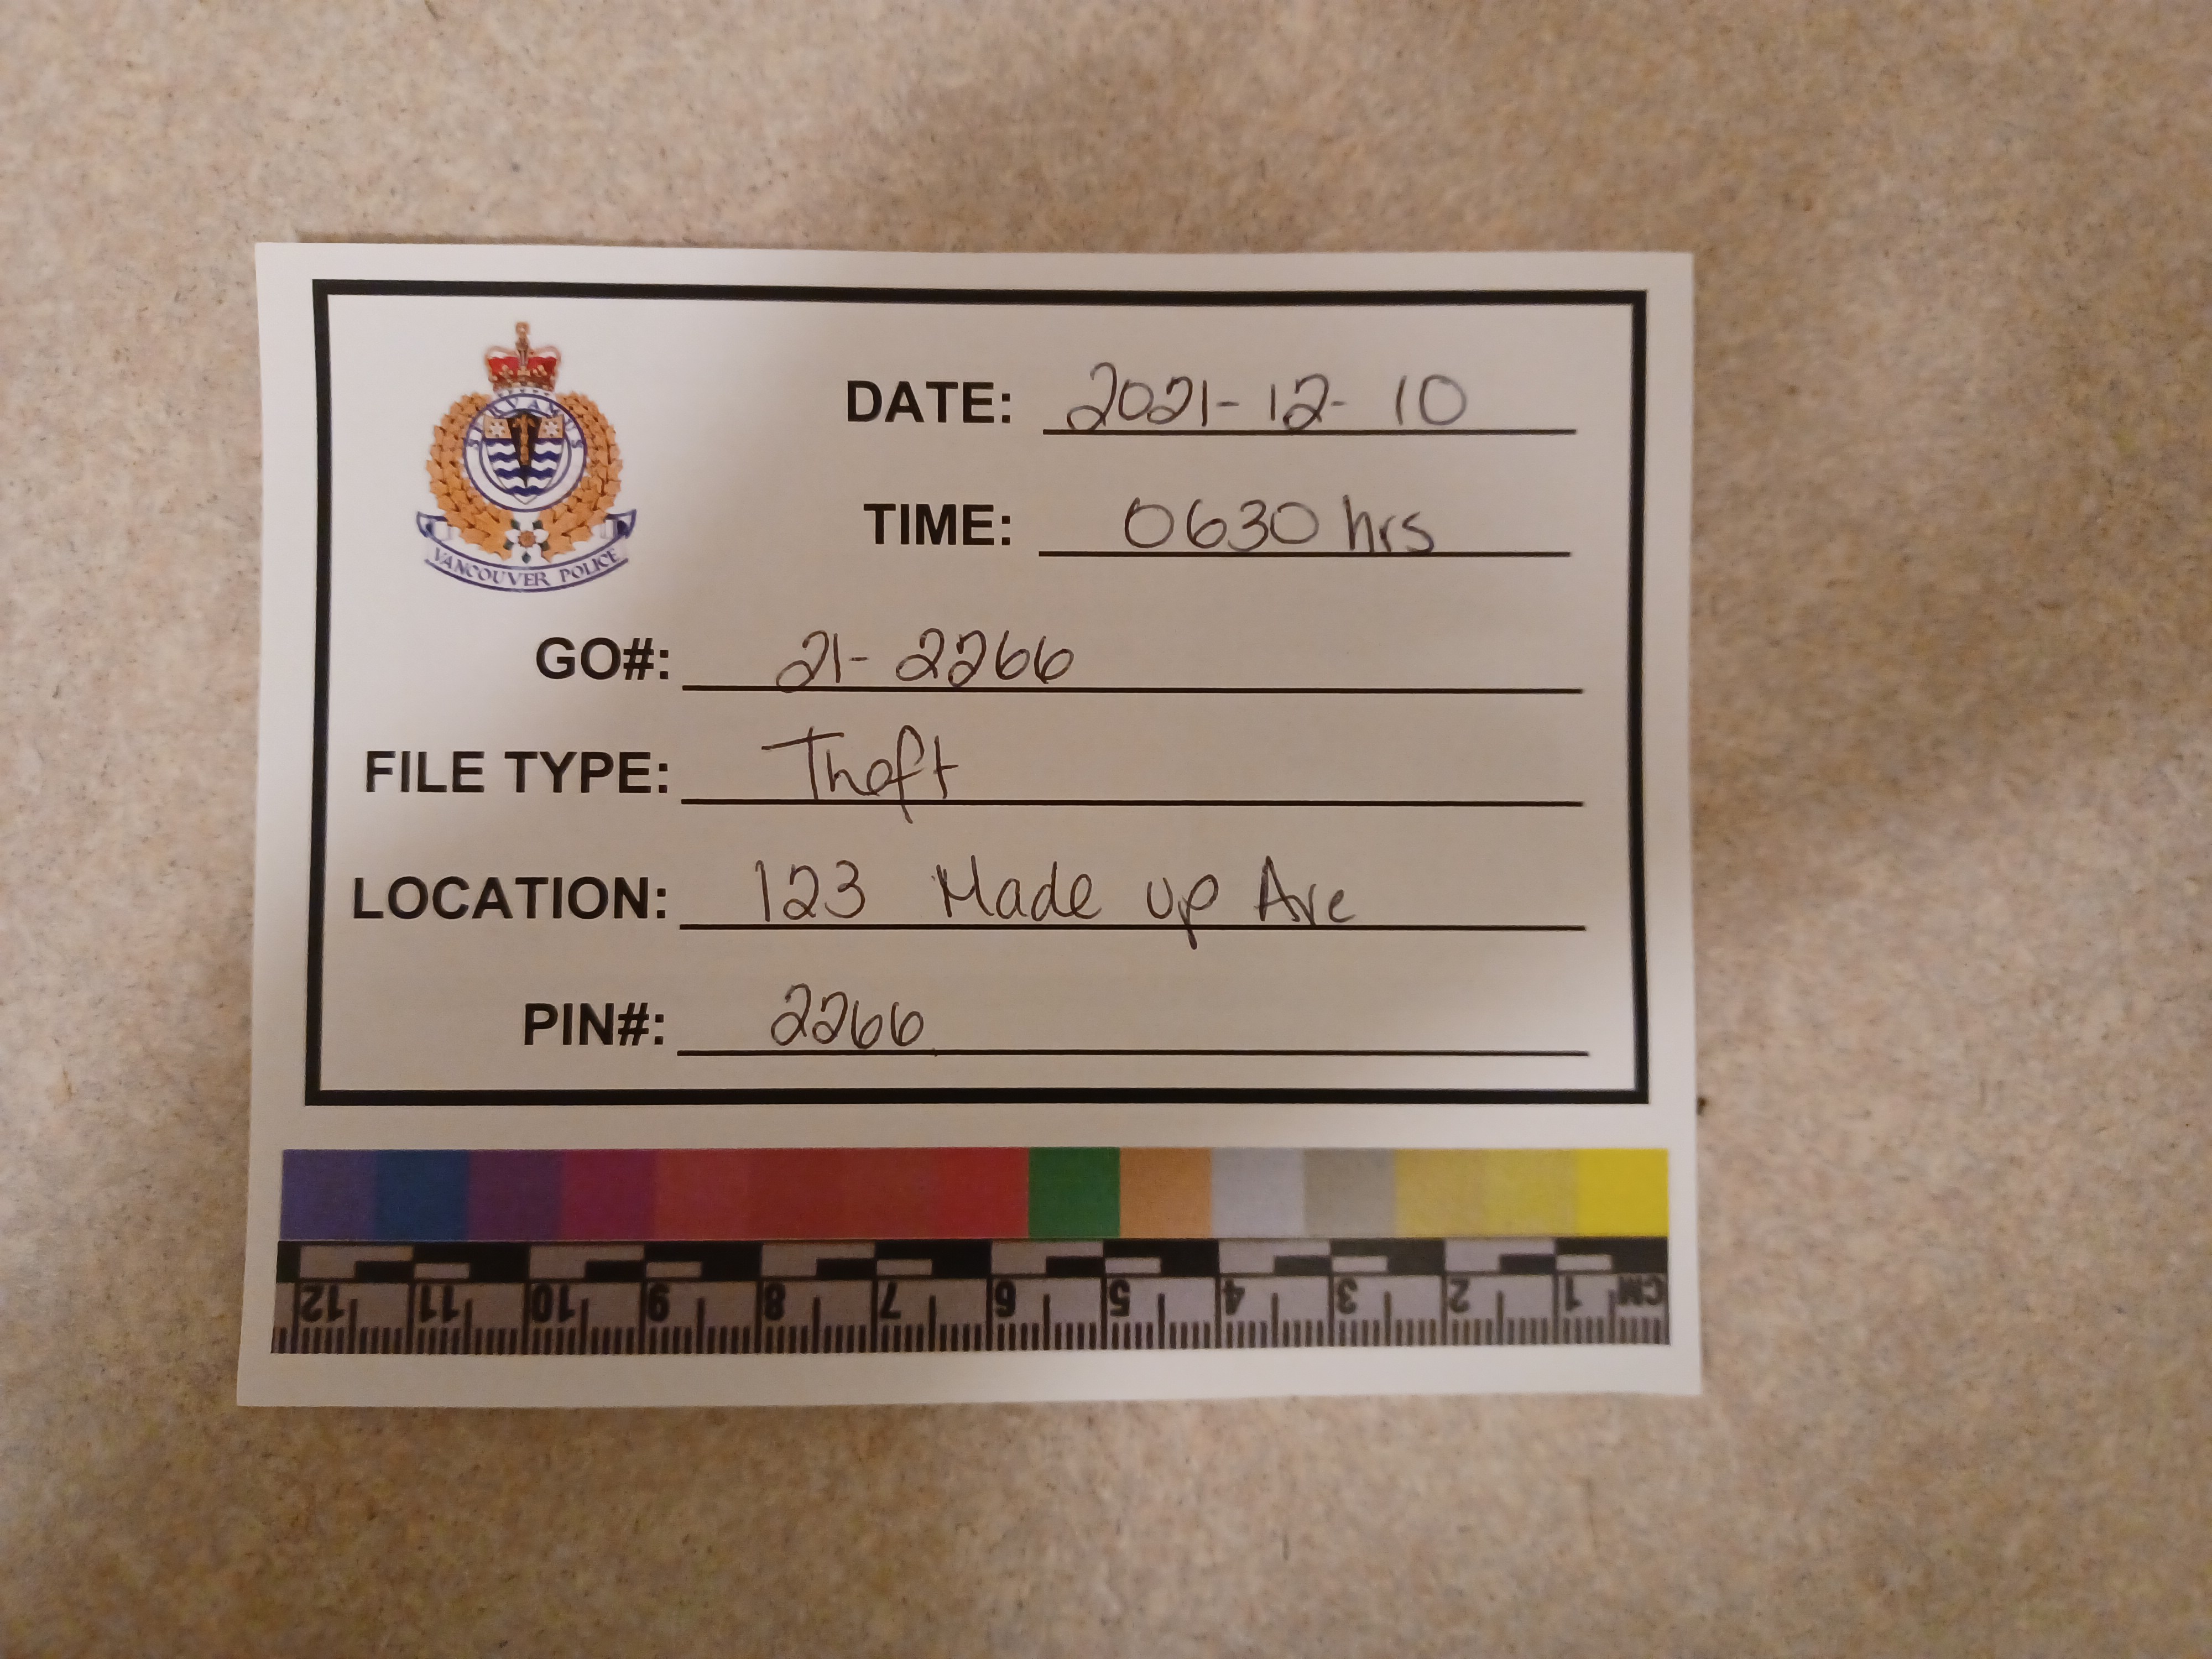 SERVAMUS
VANCOUVER POLICE
DATE: 2021-12-10
TIME: 0630 hrs
GO#: 21-2266
FILE TYPE: Theft
LOCATION: 123 Made up Ave
PIN#: 2266
12 11 10 9 8 7 6 5 4 3 2 1 CM